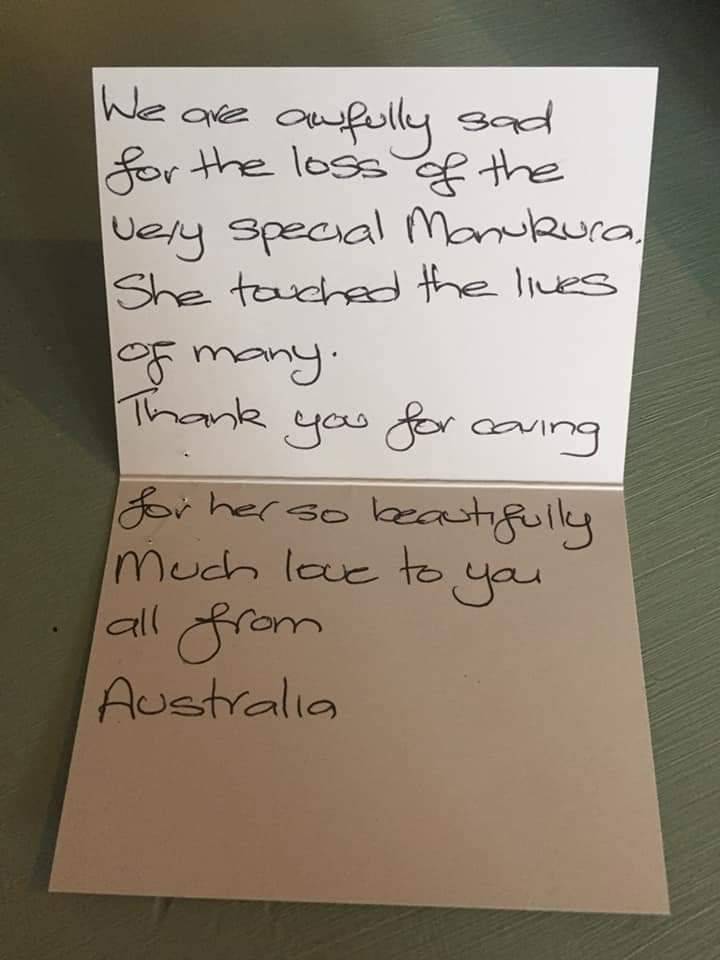 We are awfully sad
for the loss of the
very special Manukura.
She touched the lives
of many.
Thank you for caring
for her so beautifully
Much love to you
all from
Australia